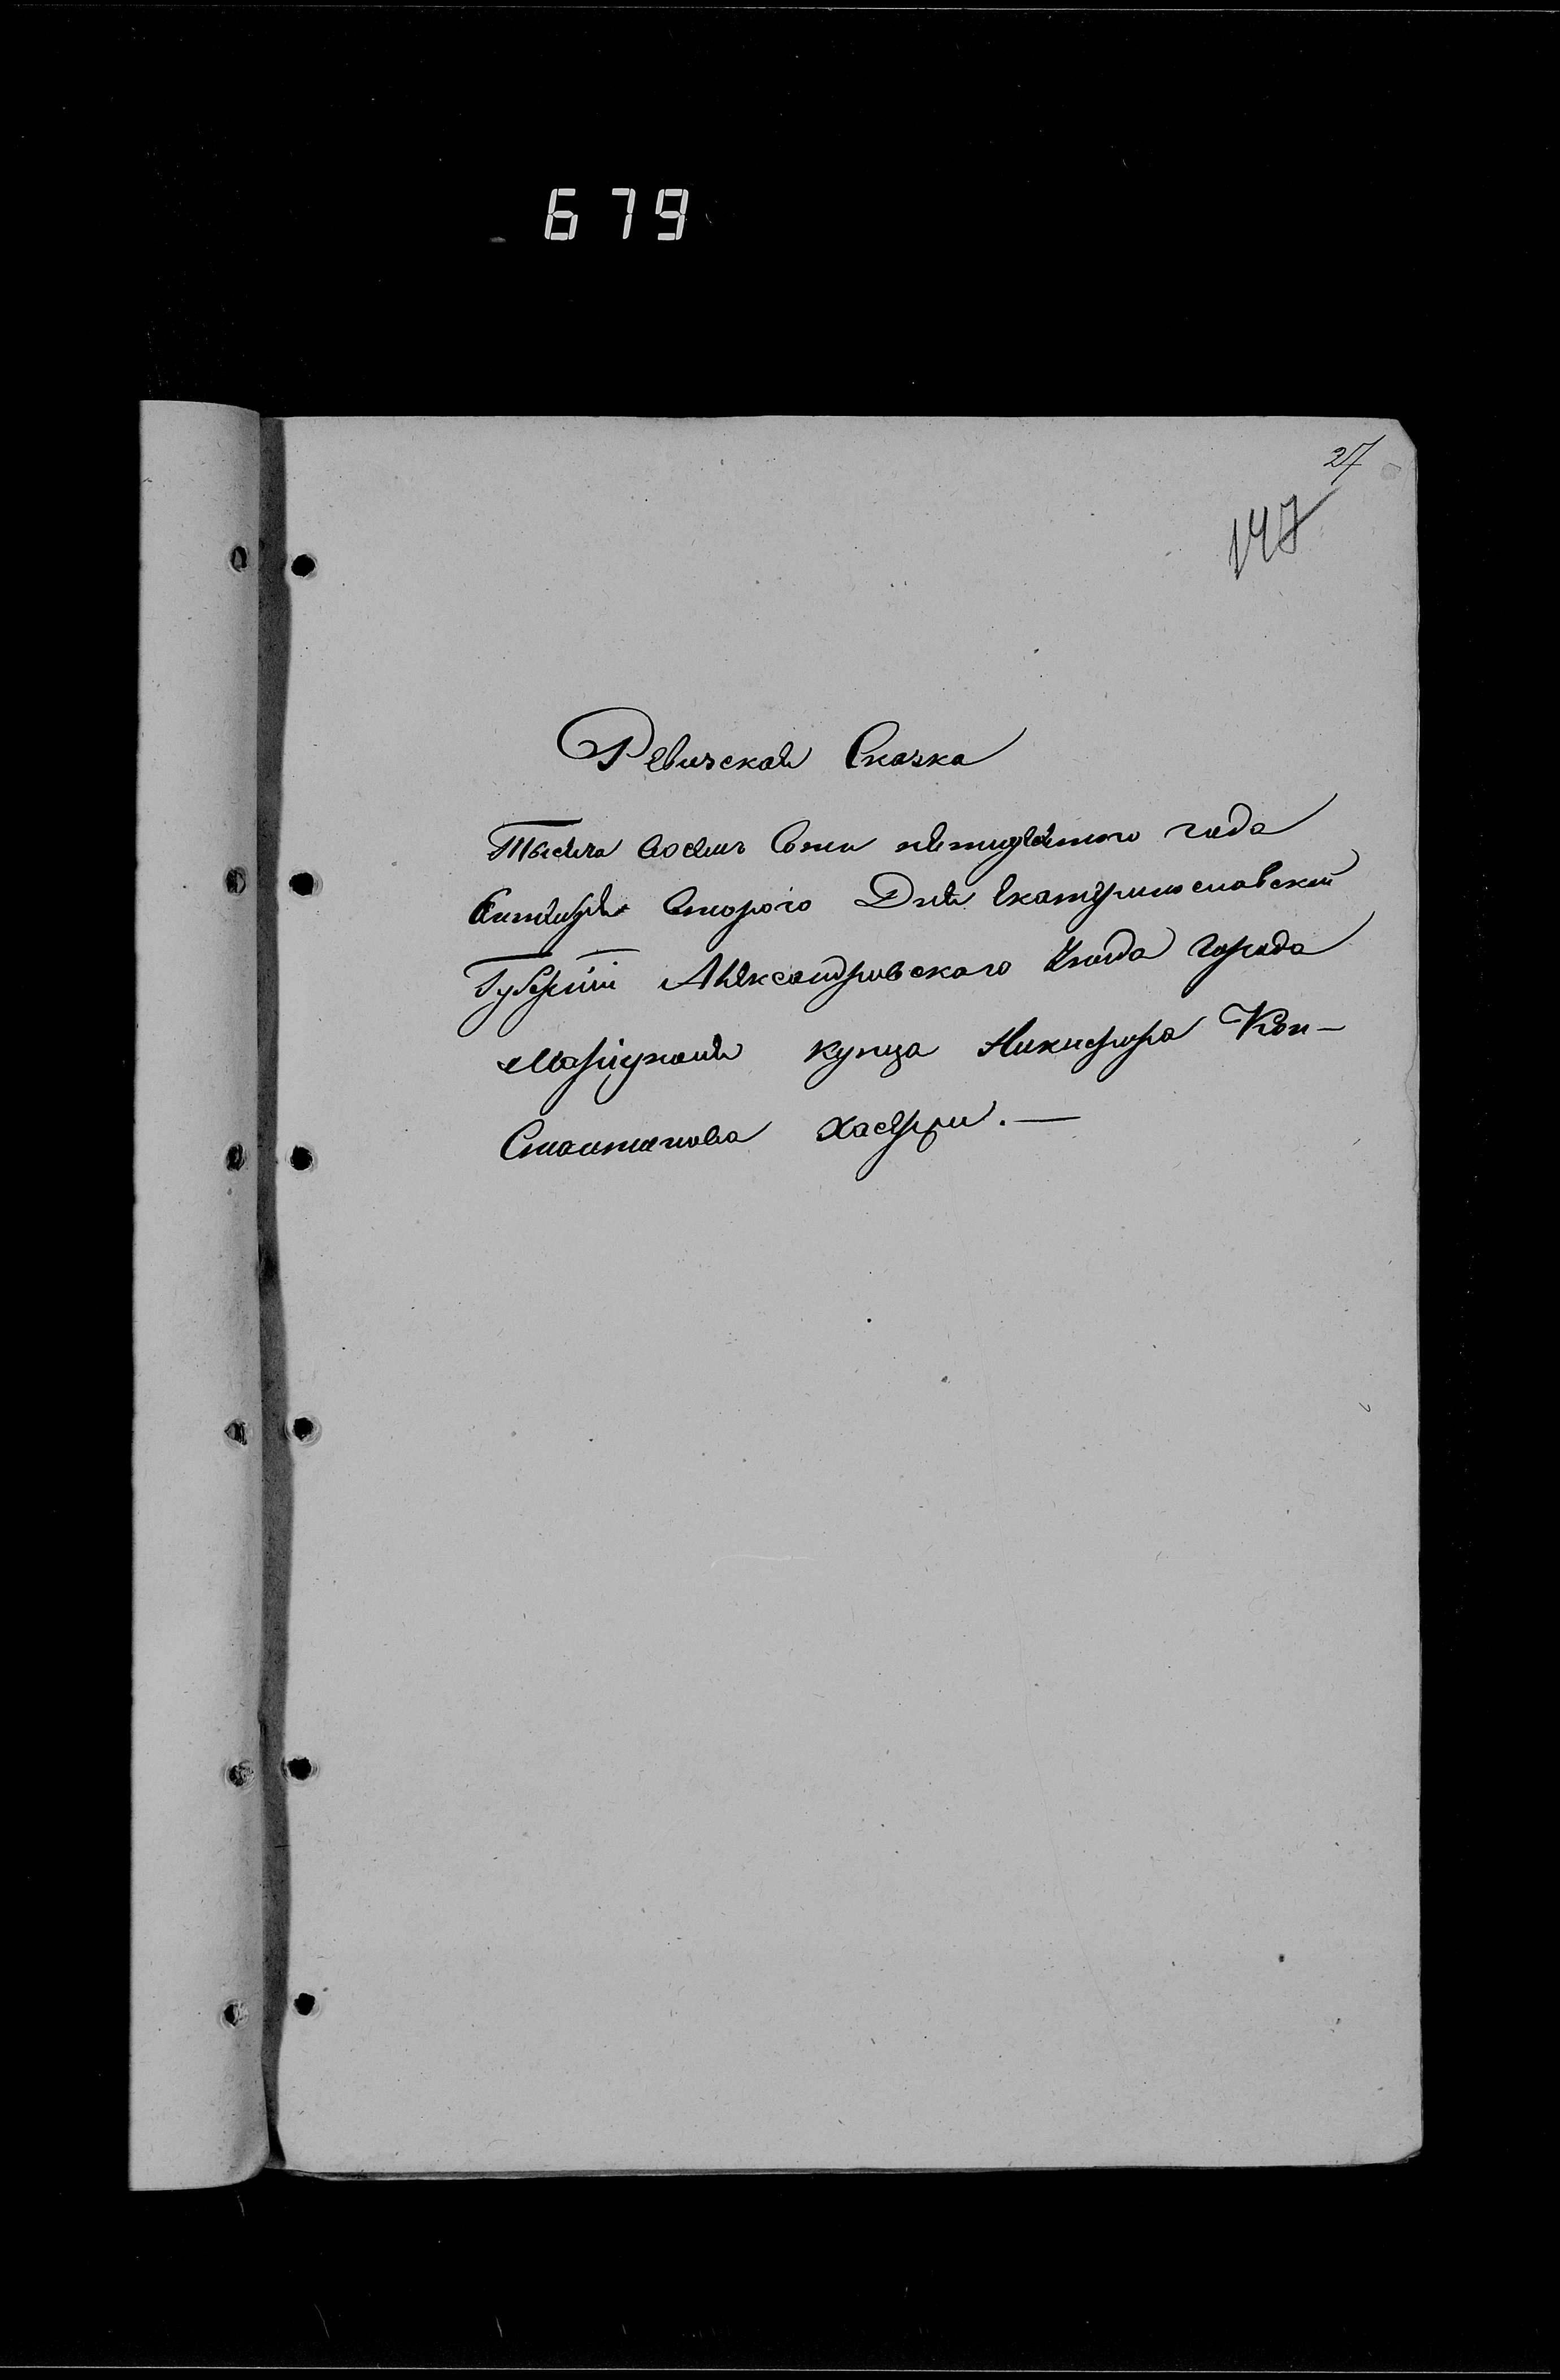 679
27
147
Ревизская Сказка
Тысяча восемь Сотъ пятидесятого года
Октября Второго Дня Екатеринославской
Губерніи Александровского уезда города
Маріуполя купца Никифора Кон-
стантинова Хаджи.—